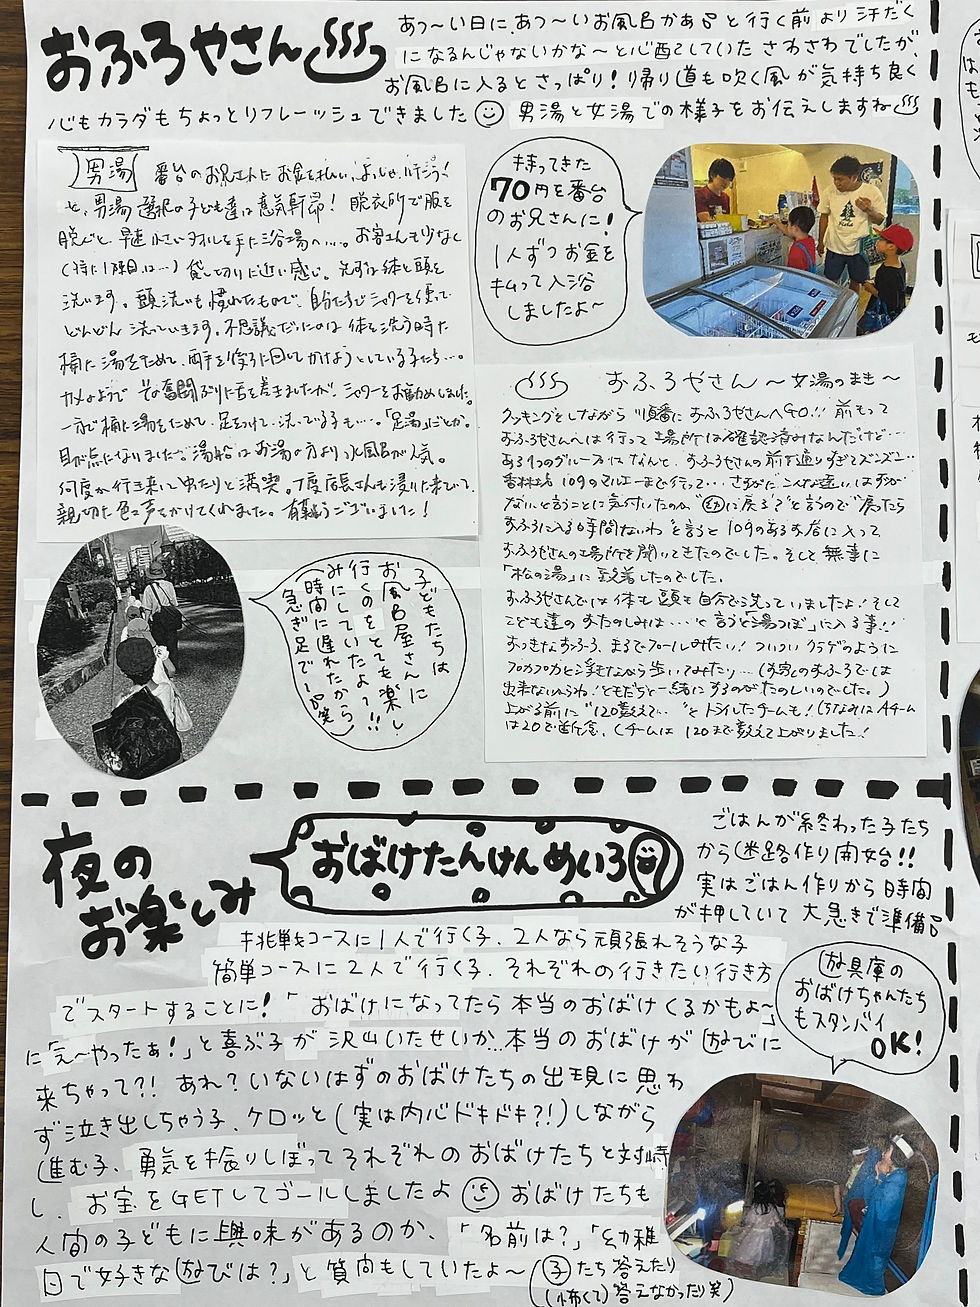 おふろやさん
あつ〜い日に、あつ〜いお風呂かぁ…と行く前より汗だく
になるんじゃないかな〜と心配していたさわさわでしたが、
お風呂に入るとさっぱり!帰り道も吹く風が気持ち良く
心もカラダもちょっとリフレーッシュできました 男湯と女湯での様子をお伝えしますね
男湯 番台のお兄さんにお金を払い、
と、男湯選択の子ども達は意気軒昂!脱衣所で服を
脱ぐと、早速小さいタオルを手に浴場へ…。お客さんも少なく
(特に1陣目は…)貸し切りに近い感じ。先ずは体と頭を
洗います。頭洗いも慣れたもので、自分たちでシャワーを使って
どんどん洗っていきます。不思議だったのは体を洗う時に
桶に湯をためて、
その奮闘ぶりに舌を巻きましたが、シャワーをお勧めしました。
桶に湯をためて、足をつけて、洗っている子も…。「足湯」だとか。
目が点になりました。湯船はお湯の方より水風呂が人気。
何度か行き来してゆったりと満喫。丁度店長さんも浸りに来ていて、
親切に色々声をかけてくれました。有難うございました!
持ってきた
70円を番台
のお兄さんに!
1人ずつお金を
払って入浴
しましたよ〜
おふろやさん〜女湯のまき〜
クッキングをしながら順番におふろやさんへGO!!前もって
おふろやさんへは行って場所は確認済みなんだけど…
ある1つのグループはなんと、おふろやさんの前を通りすぎてズンズン…
109のマルエーまで行って…さすがにこんな遠いはずが
ないと言うことに気付いたのか に戻る?"と言うので"戻ったら
おふろに入る時間ないわ"と言うと109のあるお店に入って
おふろやさんの場所を聞いてきたのでした。そして無事に
「松の湯」に到着したのでした。
おふろやさんでは体も頭も自分で洗っていましたよ!そして
こども達のおたのしみは…と言うと「湯つぼ」に入る事!!
おっきなおふろ、まるでプールみたい!ついついクラゲのように
プカプカと浮きながら歩いてみたり…(お家のおふろでは
出来ないからね!ともだちと一緒にするのがたのしいのでした。)
上がる前に"120数えて…"とトライしたチームも!(ちなみにAチーム
は20で断念、Cチームは120まで数えて上がりました!
子どもたちは
お風呂屋さんに
行くのをとても楽し
みにしていたよう!!
(時間に遅れたから
急ぎ足で…笑)
夜の
お楽しみ
おばけたんけんめいろ
ごはんが終わった子たち
から迷路作り開始!!
実はごはん作りから時間
が押していて大急ぎで準備
挑戦コースに1人で行く子、2人なら頑張れそうな子
簡単コースに2人で行く子、それぞれの行きたい行き方
でスタートすることに!「おばけになってたら本当のおばけくるかもよ〜」
に「え〜やったぁ!」と喜ぶ子が沢山いたせいか…本当のおばけが遊びに
来ちゃって?!あれ?いないはずのおばけたちの出現に思わ
ず泣き出しちゃう子、ケロッと(実は内心ドキドキ?!)しながら
進む子、勇気を振りしぼってそれぞれのおばけたちと対峙
し、お宝をGETしてゴールしましたよ おばけたちも
人間の子どもに興味があるのか、「名前は?」「幼稚
園で好きな遊びは?」と質問もしていたよ〜(子たち答えたり
(怖くて)答えなかったり笑)
遊具庫の
おばけちゃんたち
もスタンバイ
OK!